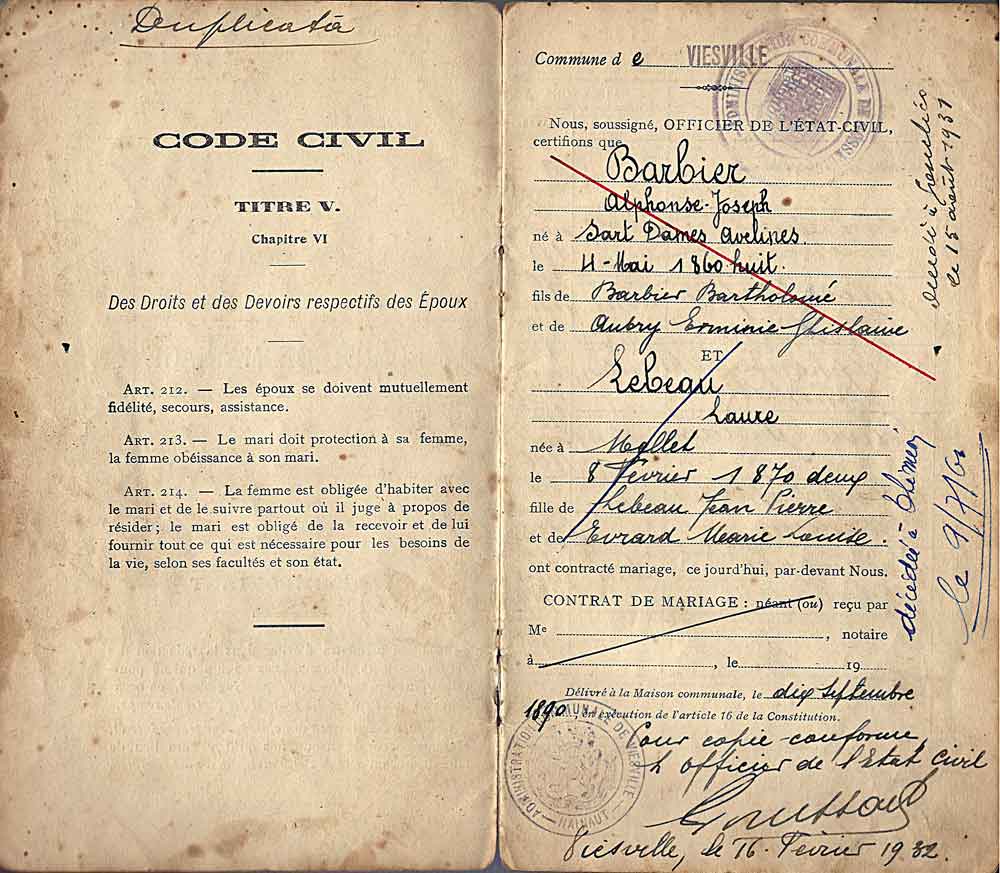 Duplicata
CODE CIVIL
TITRE V.
Chapitre VI
Des Droits et des Devoirs respectifs des Époux
ART. 212. — Les époux se doivent mutuellement
fidélité, secours, assistance.
ART. 213. — Le mari doit protection à sa femme,
la femme obéissance à son mari.
ART. 214. — La femme est obligée d'habiter avec
le mari et de le suivre partout où il juge à propos de
résider ; le mari est obligé de la recevoir et de lui
fournir tout ce qui est nécessaire pour les besoins de
la vie, selon ses facultés et son état.
Commune d e VIESVILLE
ADMINISTRATION COMMUNALE DE
Nous, soussigné, OFFICIER DE L'ÉTAT-CIVIL,
certifions que
Barbier
Alphonse-Joseph
né à Sart Dames Avelines.
le 4-Mai 1860-huit.
fils de Barbier Bartholomé
et de Aubry Erminie Ghislaine
ET
Lebeau
Laure
née à Mellet
le 8 Février 1870 deux
fille de Lebeau Jean Pierre
et de Evrard Marie Louise.
ont contracté mariage, ce jourd'hui, par-devant Nous.
CONTRAT DE MARIAGE : néant (ou) reçu par
Me , notaire
à , le 19
Délivré à la Maison communale, le dix septembre
1890, en exécution de l'article 16 de la Constitution.
Pour copie conforme,
L'officier de l'Etat Civil
Viesville, le 16 Février 1932.
ADMINISTRATION COMMUNALE DE VIESVILLE
HAINAUT
décédé à
le 15 août 1931
décédée à
le 9/7/60